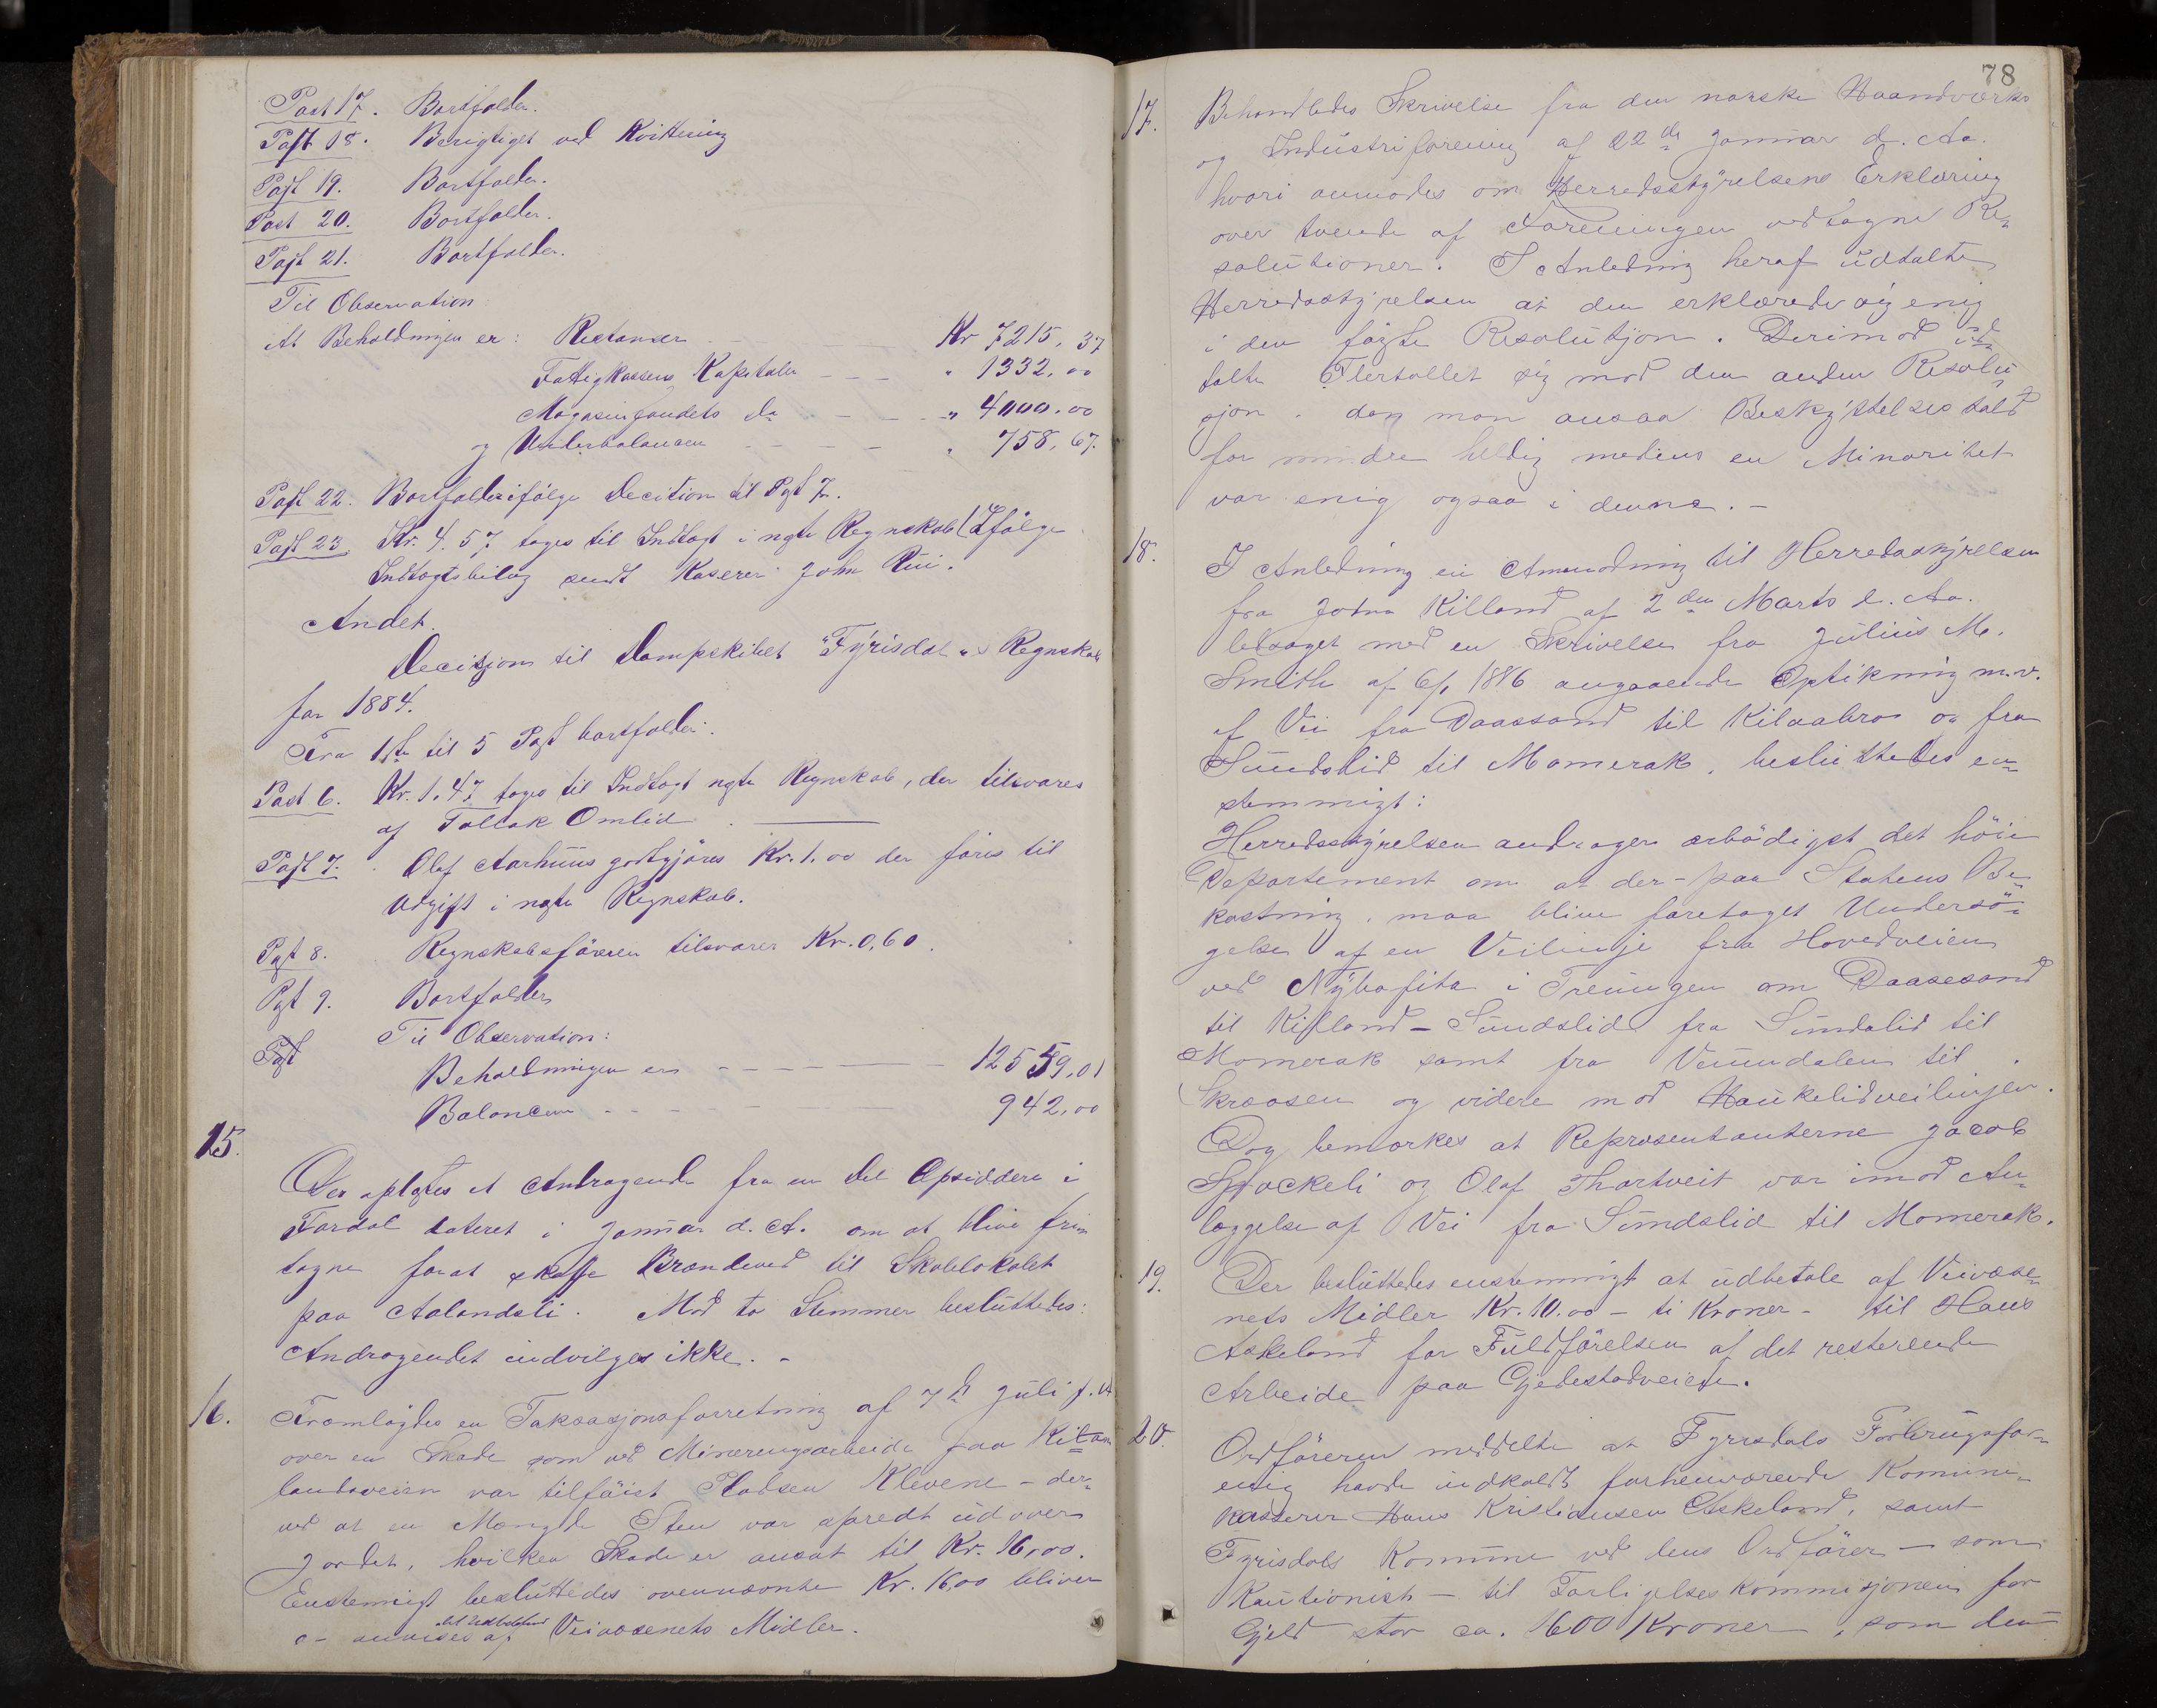 Post 17. Bortfalder.
Post 18. Berigtiget ved Kvittering
Post 19. Bortfalder.
Post 20. Bortfalder.
Post 21. Bortfalder.
Til Observation
At Beholdningen er: Restanser Kr 7215,37
Fattigkassens Kapitaler " 1332,00
Magasinfondets do " 4000,00
og Underbalancen " 758,67.
Post 22. Bortfalder ifølge Decition til Post 7.
Post 23. Kr. 4.57 tages til Indtægt i næste Regnskab (Ifølge
Indtægtsbilag sendt Kaserer John Rui.
Andet.
Decisjon til Dampskibet "Fyrisdal"s Regnskab
for 1884.
Fra 1ste til 5 Post bortfalder.
Post 6. Kr. 1.47 tages til Indtægt næste Regnskab, der tilsvares
af Tallak Omlid.
Post 7. Olaf Aarhuus godtgjøres Kr. 1.00 der føres til
Udgift i næste Regnskab.
Post 8. Regnskabsføreren tilsvarer Kr. 0,60.
Post 9. Bortfalder
Post Til Observation:
Beholdningen er 12559,01
Balancen 942,00
15.
Der oplæstes et Andragende fra en Del Opsiddere i
Fardal dateret i Januar d. A. om at blive fri-
tagne forat skaffe Brændeved til Skolelokalet
paa Aalandsli. Mod to Stemmer besluttedes:
Andragendet indvilges ikke. -
16. Fremlagdes en Taksasjonsforretning af 7de Juli f. A
over en Skade som ved Mineringsarbeide paa Kilan
landsveien var tilføiet Pladsen Klevene - der-
ved at en Mængde Sten var spredt udover
Jordet, hvilken Skade er ansat til Kr. 16,00.
Enstemigt besluttedes ovennævnte Kr. 16,00 bliver
at anvises til Udbetaling af Veivæsenets Midler.
78
17. Behandledes Skrivelse fra den norske Haandværks
og Industriforening af 22de Januar d. Aa.
hvori anmodes om Herredsstyrelsens Erklæring
over tvende af Foreningen vedtagne Re-
solutioner. I Anledning heraf udtalte
Herredsstyrelsen at den erklærede sig enig
i den første Resolutjon. Derimod ud-
talte Flertallet sig mod den anden Resolu-
sjon. da man ansaa Beskyttelsestold
for mindre heldig medens en Minoritet
var enig ogsaa i denne. -
18. I Anledning en Anmodning til Herredsstyrelsen
fra Jodna Killand af 2den Marts d. Aa.
ledsaget med en Skrivelse fra Julius M.
Smith af 6/1 1886 angaaende Optikning m.v.
af Vei fra Daassand til Kilaabro og fra
Sundslid til Momerak, besluttedes en-
stemmigt:
Herredsstyrelsen andrager ærbødigst det høie
Departement om at der - paa Statens Be-
kostning, maa blive foretaget Undersø-
gelse af en Veilinje fra Hovedveien
ved Nybofita i Treungen om Daasesand
til Killand - Sundslid fra Sundslid til
Momerak samt fra Veumdalen til
Skraasen og videre mod Haukelidveilinjen.
Dog bemærkes at Repræsentanterne Jacob
Spockeli og Olaf Thortveit var imod An-
læggelse af Vei fra Sundslid til Momerak.
19. Der besluttedes enstemmigt at udbetale af Veivæse-
nets Midler Kr. 10.00 - ti Kroner - til Hans
Askeland for Fuldførelsen af det resterende
Arbeide paa Gjedestadveiete.
20. Ordføreren meddelte at Fyrisdals Forbrugsfor-
enig havde indkaldt forhenværende Komune-
kasserer Hans Kristiansen Askeland, samt
Fyrisdals Komune ved dens Ordfører - som
Kautionist - til Forligelseskommisjonen for
Gjeld stor ca. 1600 Kroner, som den